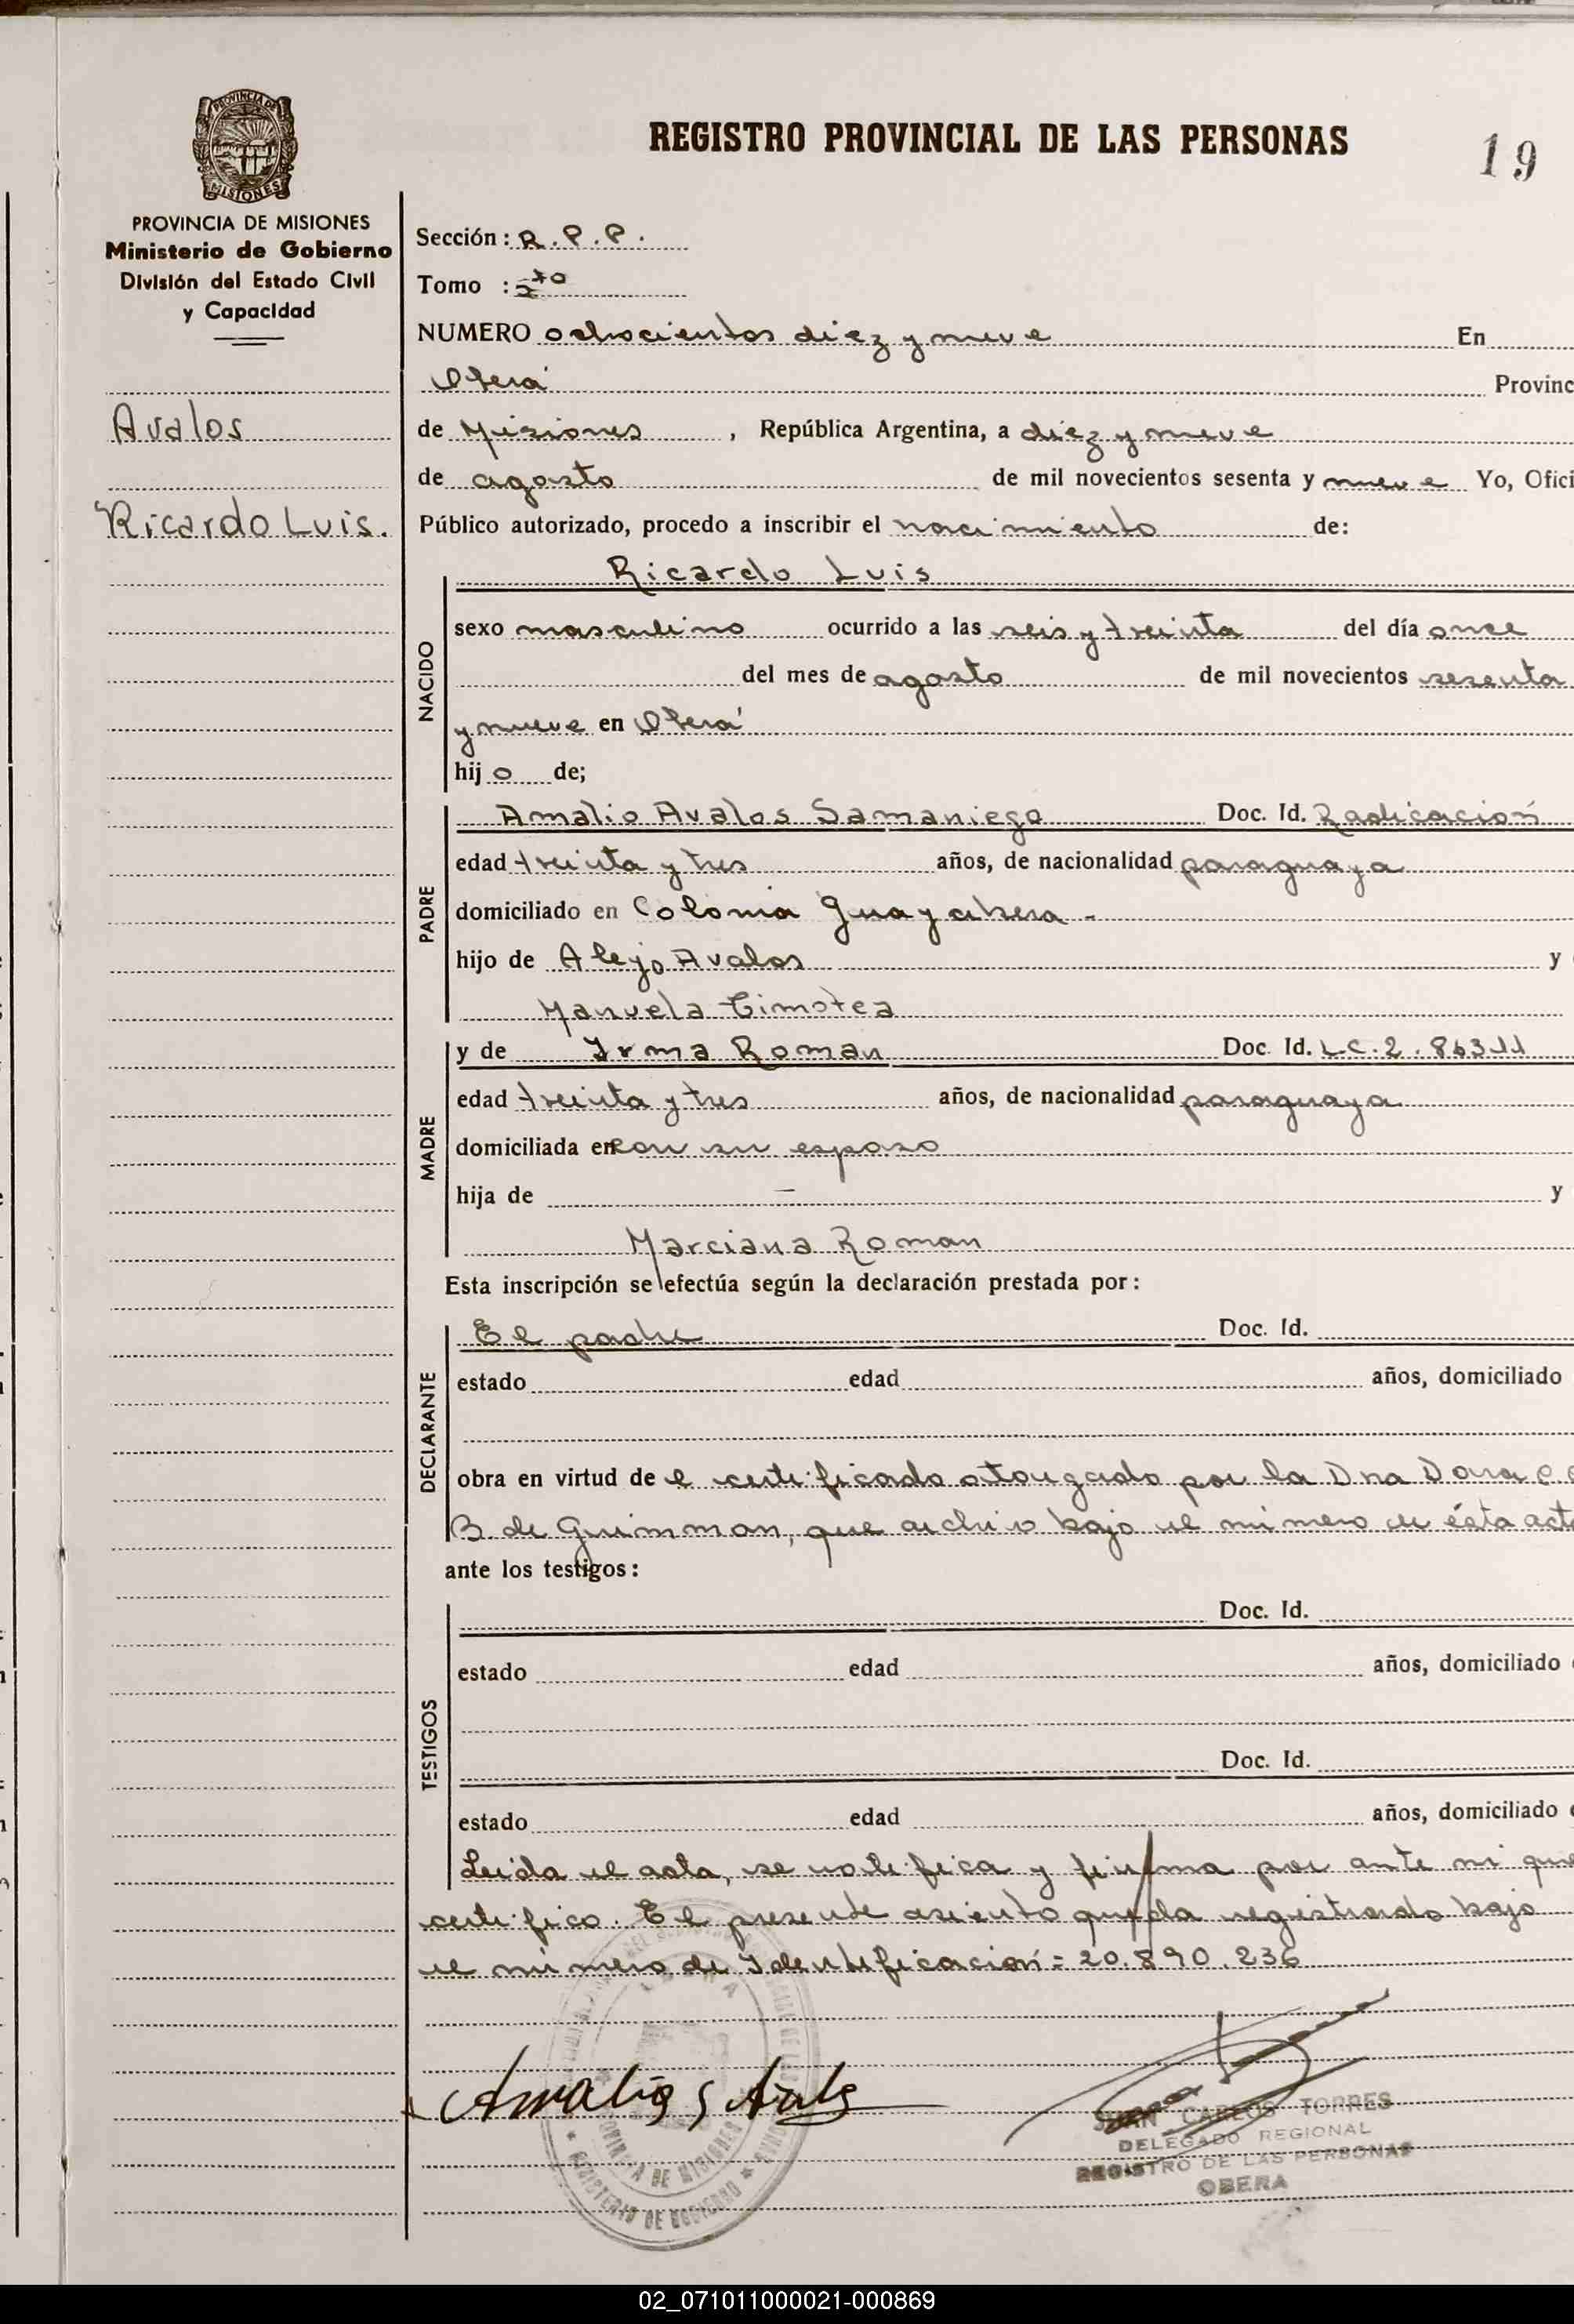 PROVINCIA DE
MISIONES
PROVINCIA DE MISIONES
Ministerio de Gobierno
División del Estado Civil
y Capacidad
REGISTRO PROVINCIAL DE LAS PERSONAS
19
Sección: R.P.P.
Tomo :
NUMERO ochocientos diez y nueve En
Oberá Provinc
Avalos
de Misiones , República Argentina, a diez y nueve
de agosto de mil novecientos sesenta y nueve Yo, Ofici
Ricardo Luis.
Público autorizado, procedo a inscribir el nacimiento de:
Ricardo Luis
NACIDO
sexo masculino ocurrido a las seis y treinta del día once
del mes de agosto de mil novecientos sesenta
y nueve en Oberá
hijo de;
PADRE
Amalio Avalos Samaniego Doc. Id. Radicación
edad treinta y tres años, de nacionalidad paraguaya
domiciliado en Colonia Guayabera -
hijo de Alejo Avalos y
Manuela Timotea
MADRE
y de Irma Roman Doc. Id. L.C. 2.
edad treinta y tres años, de nacionalidad paraguaya
domiciliada en con su esposo
hija de — y
Marciana Roman
Esta inscripción se efectúa según la declaración prestada por:
DECLARANTE
El padre Doc. Id.
estado edad años, domiciliado
obra en virtud de el certificado otorgado por la Dna Dora
B. de Guimman, que archivo bajo el número de ésta acta
ante los testigos:
TESTIGOS
Doc. Id.
estado edad años, domiciliado
Doc. Id.
estado edad años, domiciliado
Leida el acta, se notifica y firma por ante mi que
certifico. El presente asiento queda registrado bajo
el número de Identificación = 20.890.236
Amalio S Avalos
JUAN CARLOS TORRES
DELEGADO REGIONAL
REGISTRO DE LAS PERSONAS
OBERA
PROVINCIA DE MISIONES
MINISTERIO DE GOBIERNO
02_071011000021-000869